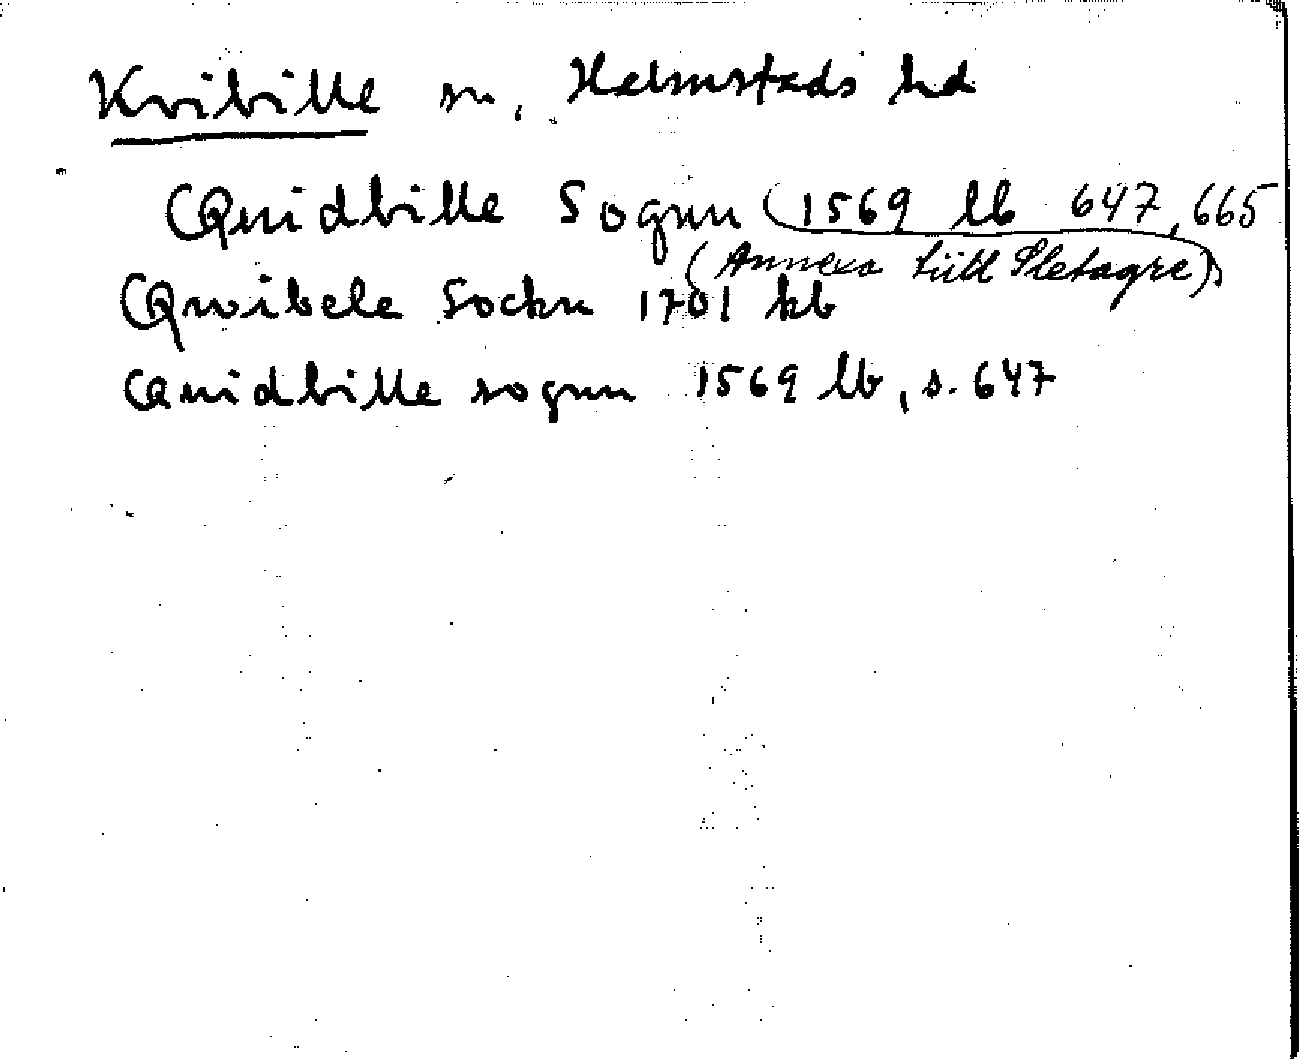 Kvibille sn, Halmstads hd
Quidbille Sognn (1569 lb 647, 665
(Annexa tiill Sletagre))
Qwibele Sockn 1701 kb
Quidbille sognn 1569 lb, s. 647